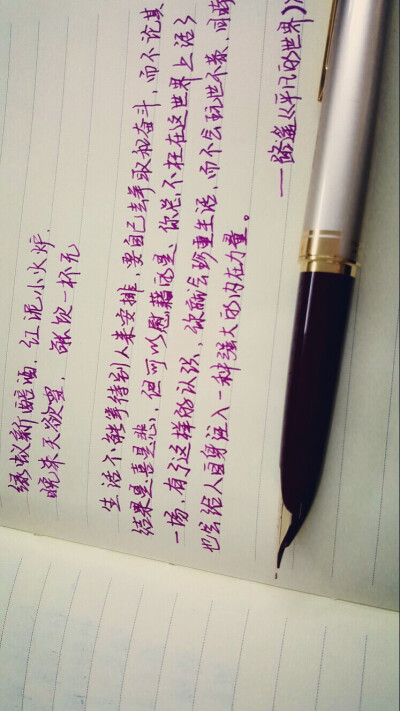 绿蚁新醅酒，红泥小火炉．
晚来天欲雪，能饮一杯无
生活不能等待别人来安排，要自己去争取和奋斗，而不论其
结果是喜是悲，但可以慰藉的是，你总不枉在这世界上活了
一场，有了这样的认识，你就会珍重生活，而不会玩世不恭，同时
也会给人自身注入一种强大的内在力量。
——路遥《平凡的世界》